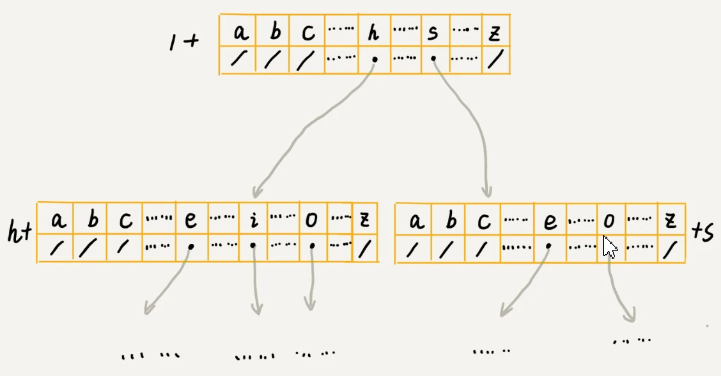 / + a b c ...... h ...... s ...... z
/ / / ...... ...... ...... /
h+ a b c ...... e ...... i ...... o ...... z
/ / / ...... ...... ...... ...... /
a b c ...... e ...... o ...... z +s
/ / / ...... ...... ...... /
...... ...... ...... ......
...... ......